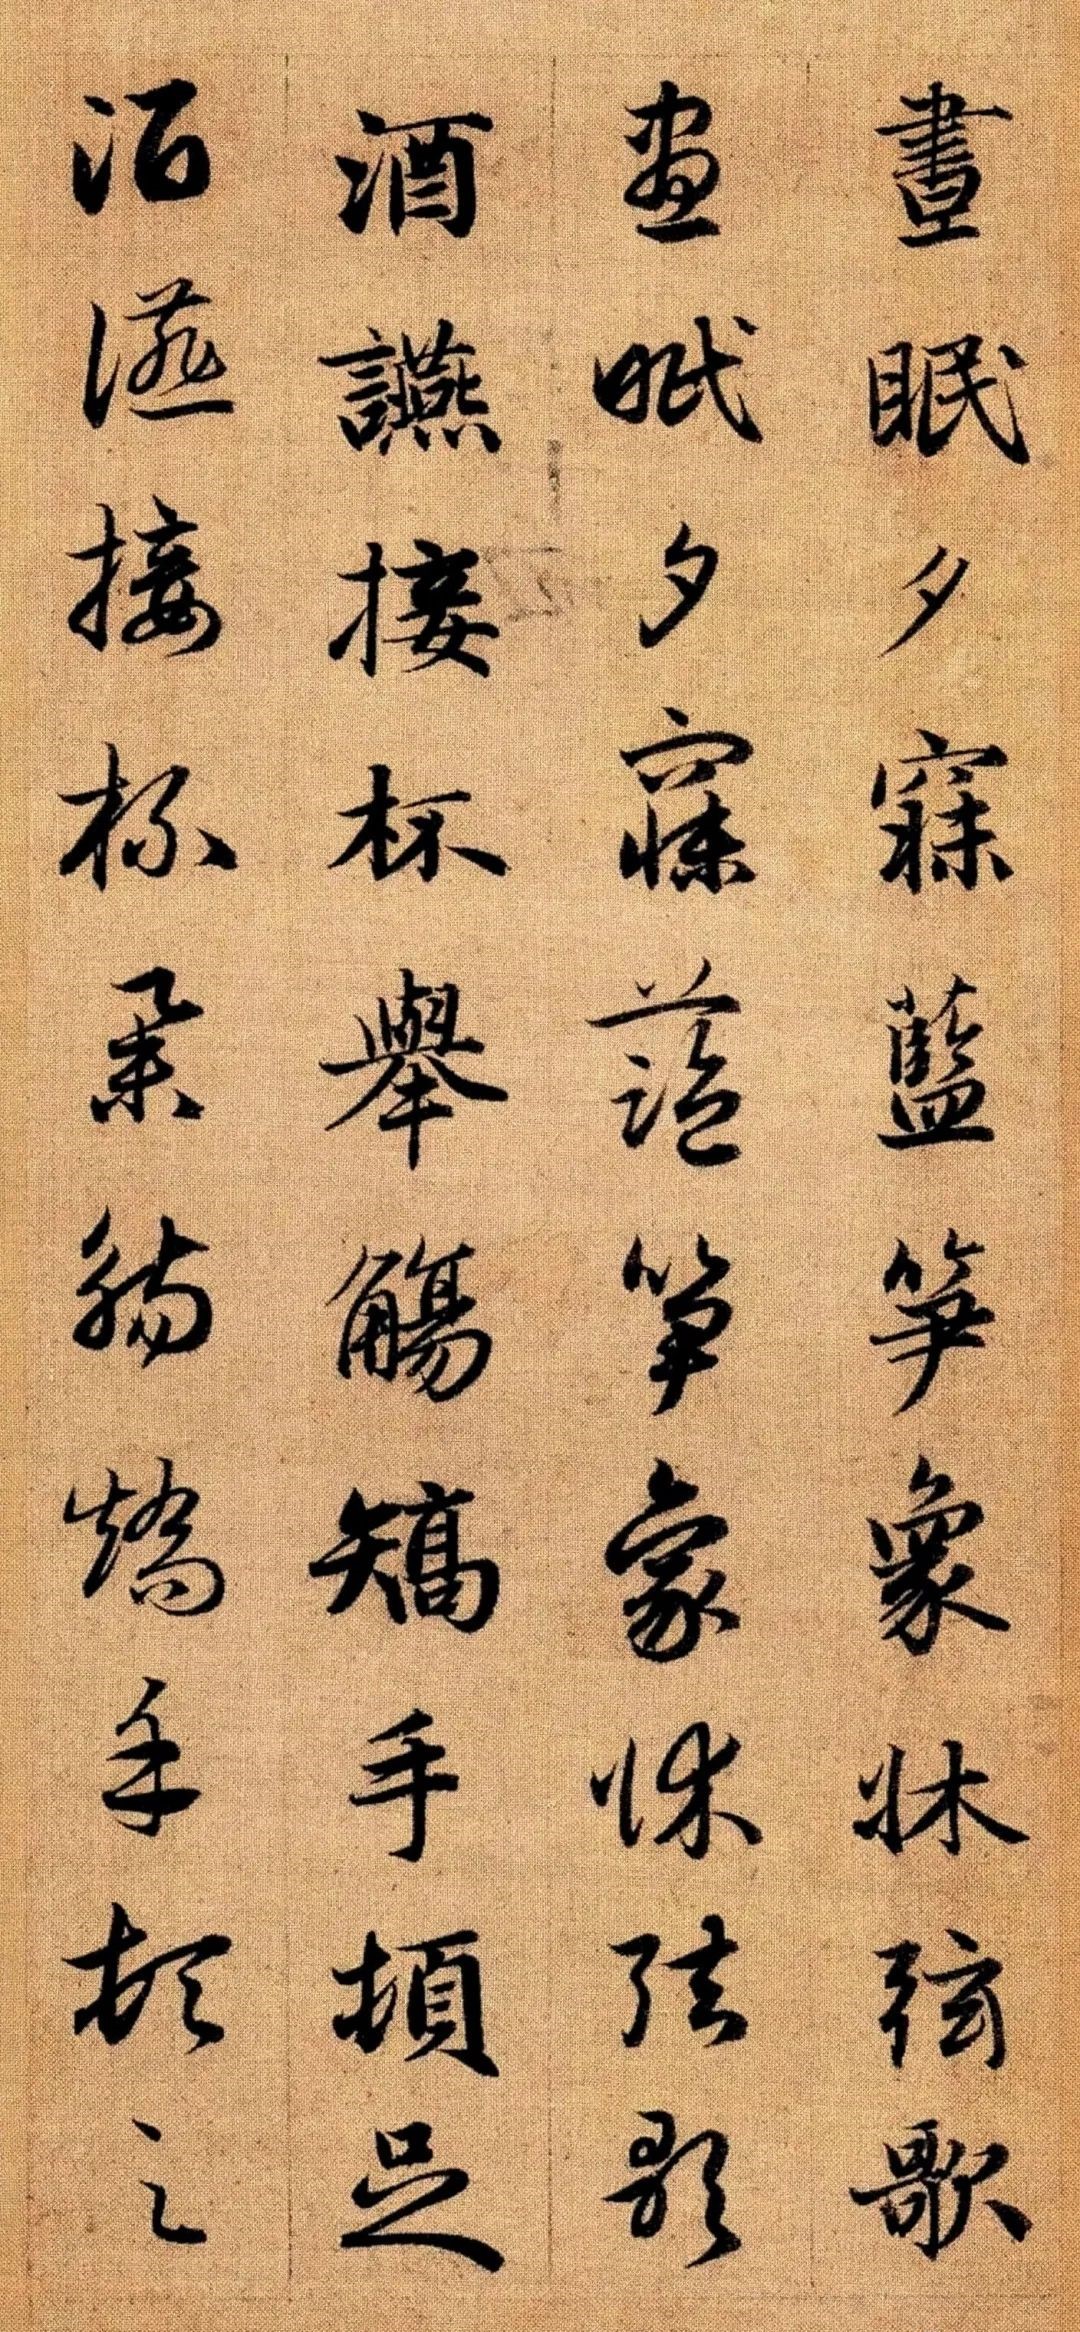 晝眠夕寐藍笋象牀弦歌
晝眠夕寐藍笋象牀弦歌
酒讌接杯舉觴矯手頓足
酒讌接杯舉觴矯手頓足